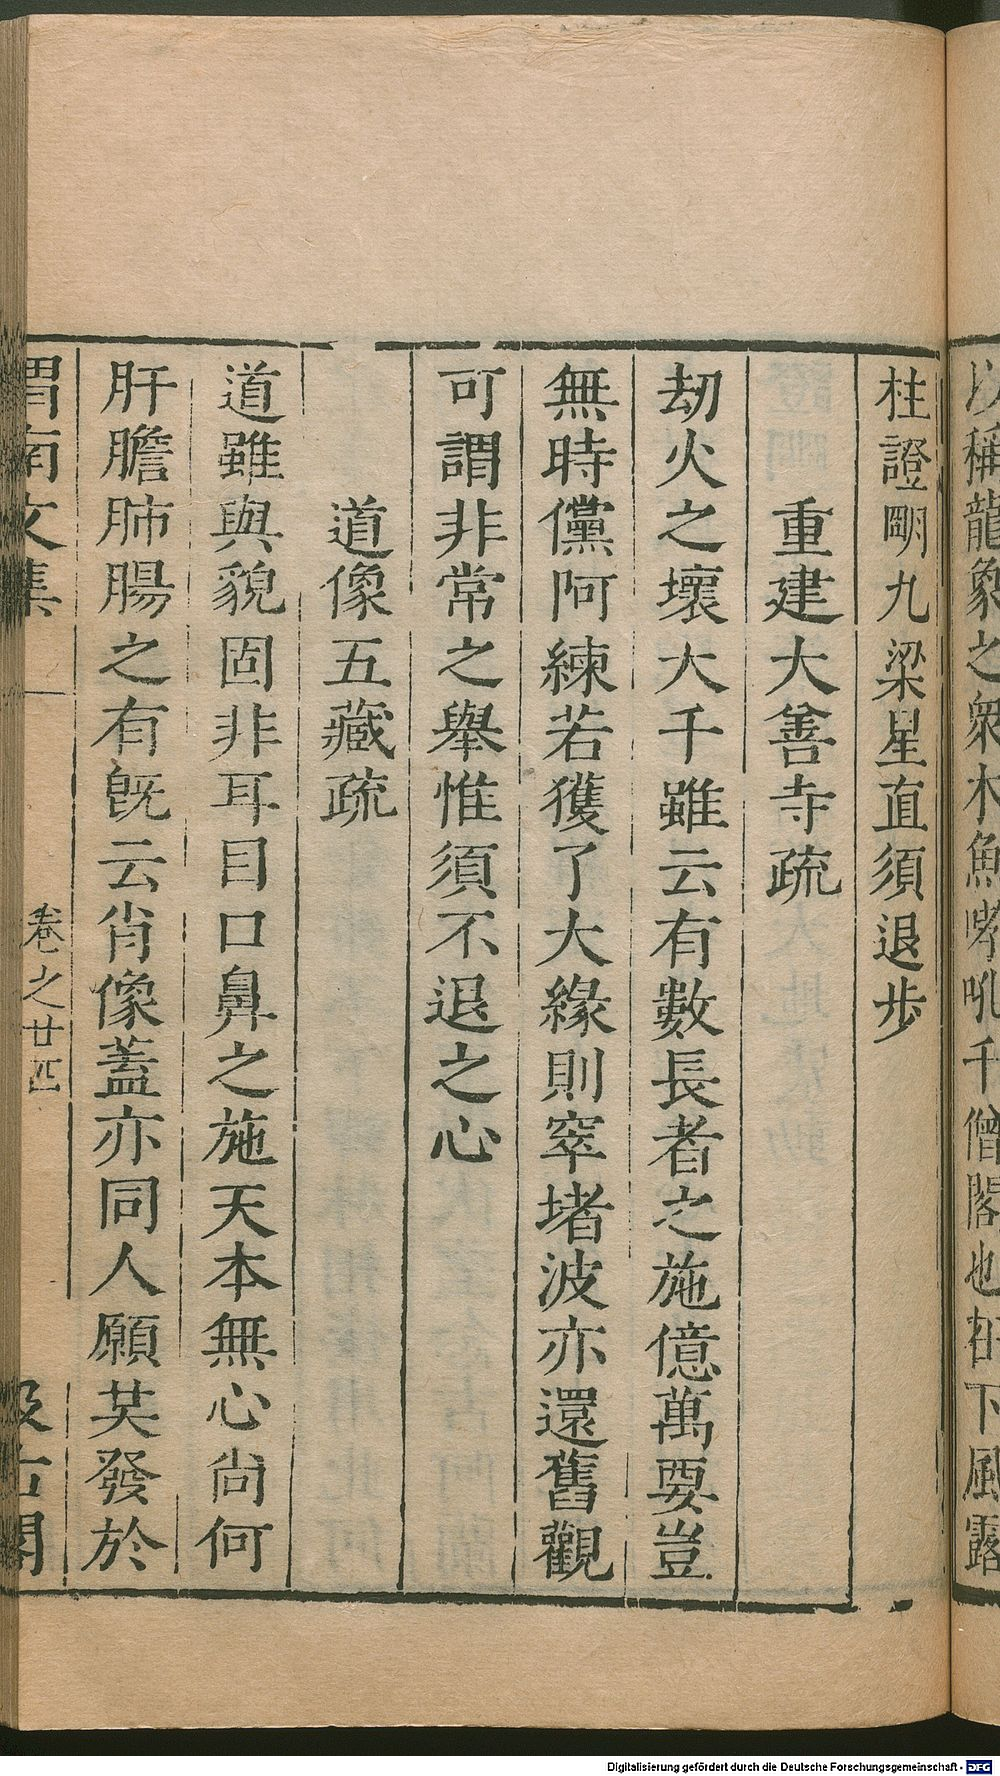 以稱龍象之衆木魚哮吼千僧閣也卻下風露
柱證明九梁星直須退步
重建大善寺疏
劫火之壞大千雖云有數長者之施億萬要豈
無時儻阿練若獲了大緣則窣堵波亦還舊觀
可謂非常之舉惟須不退之心
道像五藏疏
道雖與貌固非耳目口鼻之施天本無心尚何
肝膽肺腸之有旣云肖像蓋亦同人願英發於
渭南文集
卷之廿四
汲古閣
Digitalisierung gefördert durch die Deutsche Forschungsgemeinschaft - DFG